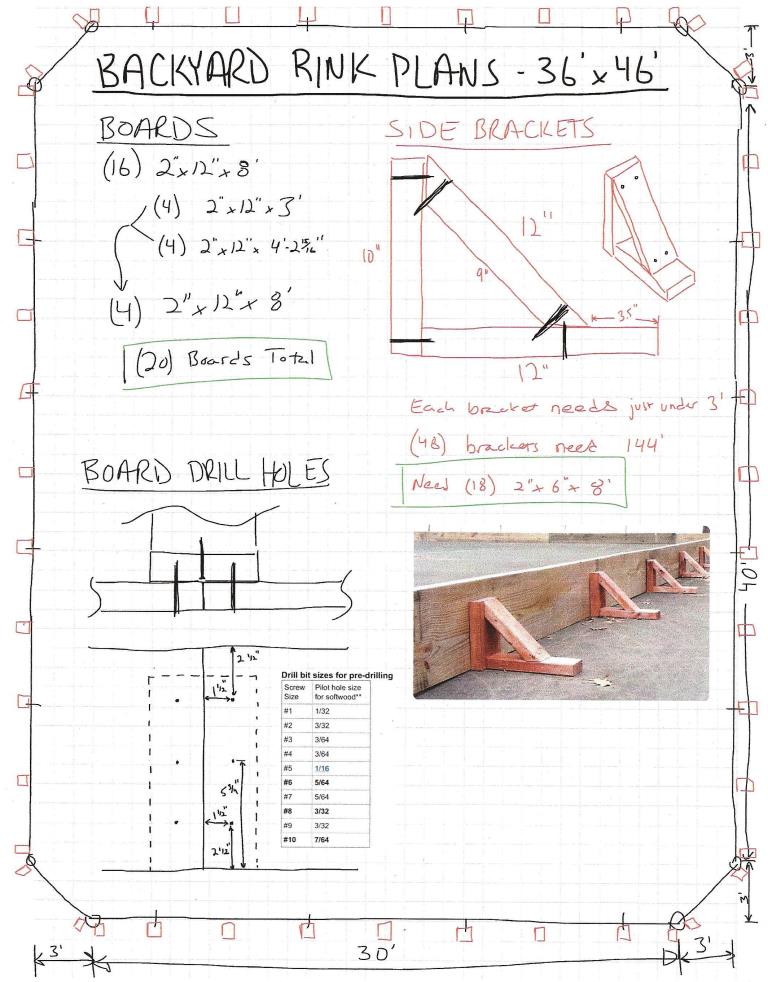 BACKYARD RINK PLANS - 36'x46'
BOARDS
(16) 2"x12"x8'
(4) 2"x12"x3'
(4) 2"x12"x 4'-2 15/16"
(4) 2"x12"x 8'
(20) Boards Total
SIDE BRACKETS
10"
12"
9"
3.5"
12"
Each bracket needs just under 3'
(48) brackets need 144'
Need (18) 2"x6"x8'
BOARD DRILL HOLES
2 1/2"
1 1/2"
5 3/4"
1 1/2"
2 1/2"
Drill bit sizes for pre-drilling
Screw Size Pilot hole size for softwood**
#1 1/32
#2 3/32
#3 3/64
#4 3/64
#5 1/16
#6 5/64
#7 5/64
#8 3/32
#9 3/32
#10 7/64
3'
40'
3'
3'
30'
3'